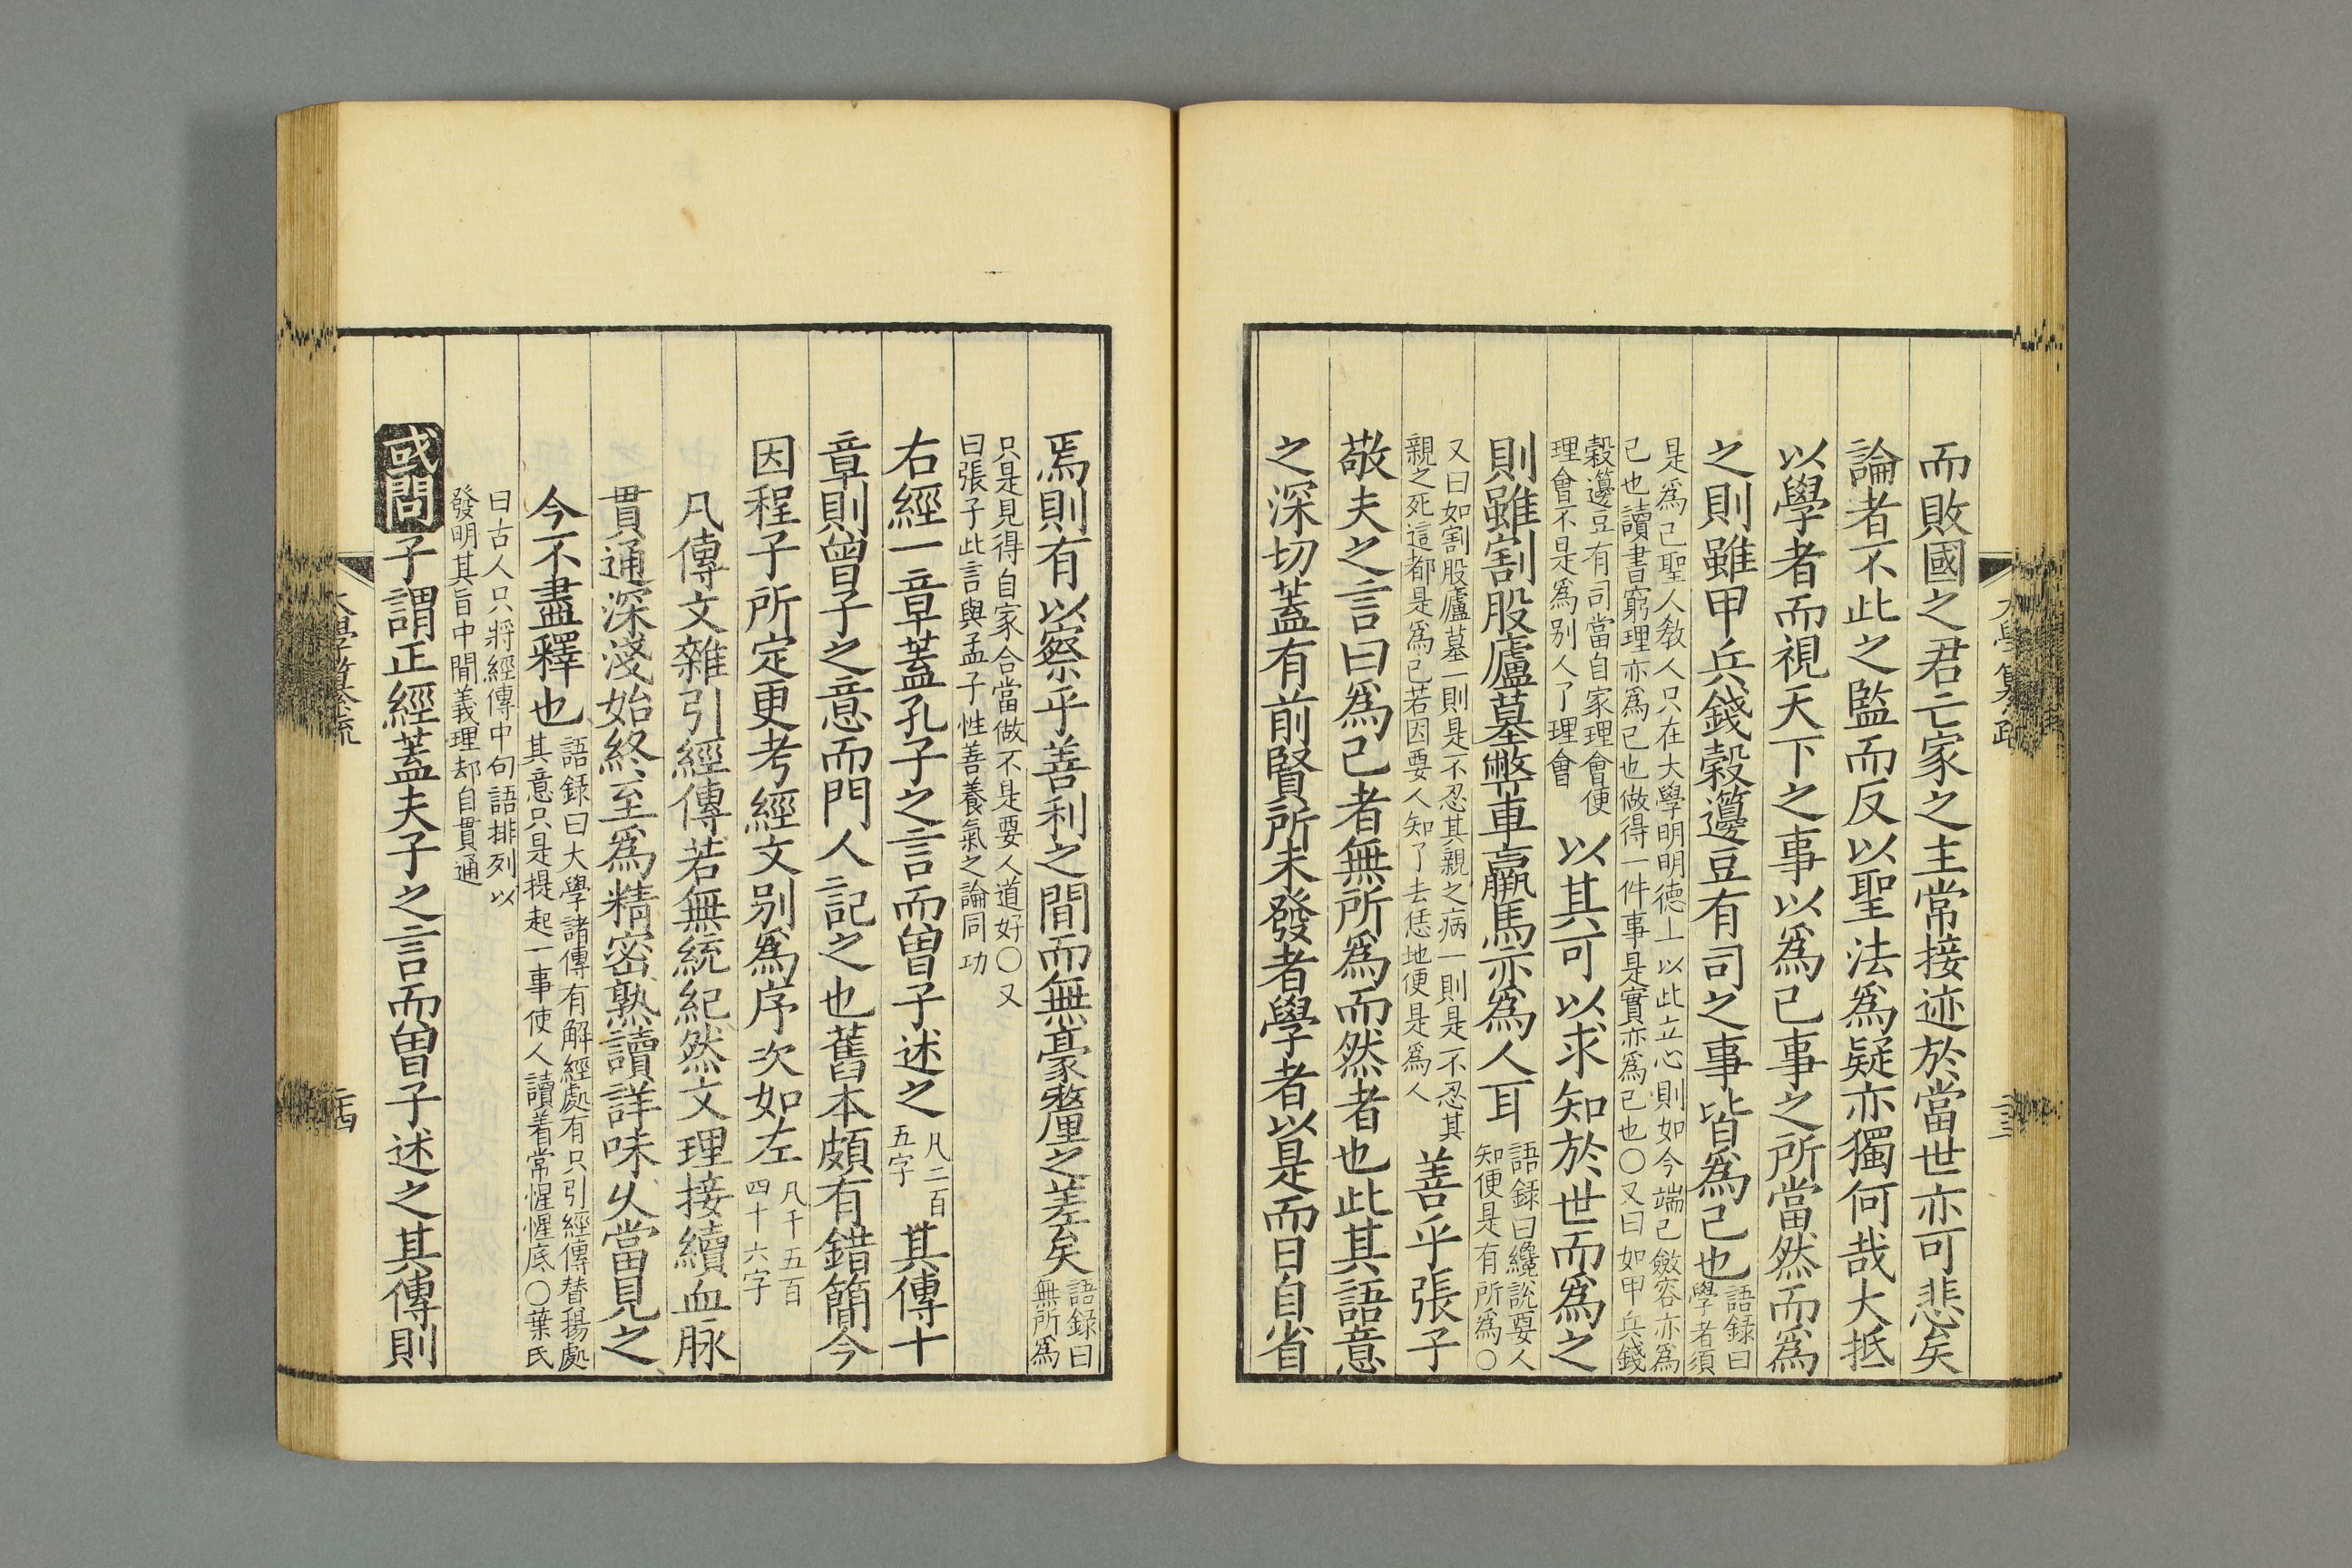 而敗國之君亡家之主常接迹於當世亦可悲矣
論者不此之監而反以聖法爲疑亦獨何哉大抵
以學者而視天下之事以爲己事之所當然而爲
之則雖甲兵錢穀籩豆有司之事皆爲己也語錄曰
學者須
是爲己聖人敎人只在大學明明德上以此立心則如今端己斂容亦爲
己也讀書窮理亦爲己也做得一件事是實亦爲己也○又曰如甲兵錢
穀籩豆有司當自家理會便
理會不是爲别人了理會
以其可以求知於世而爲之
則雖割股廬墓弊車羸馬亦爲人耳
語錄曰纔說要人
知便是有所爲○
又曰如割股廬墓一則是不忍其親之病一則是不忍其
親之死這都是爲己若因要人知了去恁地便是爲人
善乎張子
敬夫之言曰爲己者無所爲而然者也此其語意
之深切蓋有前賢所未發者學者以是而日自省
大學纂疏
焉則有以察乎善利之間而無毫釐之差矣
語錄曰
無所爲
只是見得自家合當做不是要人道好○又
曰張子此言與孟子性善養氣之論同功
右經一章蓋孔子之言而曾子述之
凡二百
五字
其傳十
章則曾子之意而門人記之也舊本頗有錯簡今
因程子所定更考經文别爲序次如左
凡千五百
四十六字
凡傳文雜引經傳若無統紀然文理接續血脉
貫通深淺始終至爲精密熟讀詳味久當見之
今不盡釋也
語錄曰大學諸傳有解經處有只引經傳替揚處
其意只是提起一事使人讀着常惺惺底○葉氏
曰古人只將經傳中句語排列以
發明其旨中間義理却自貫通
或問子謂正經蓋夫子之言而曾子述之其傳則
大學纂疏